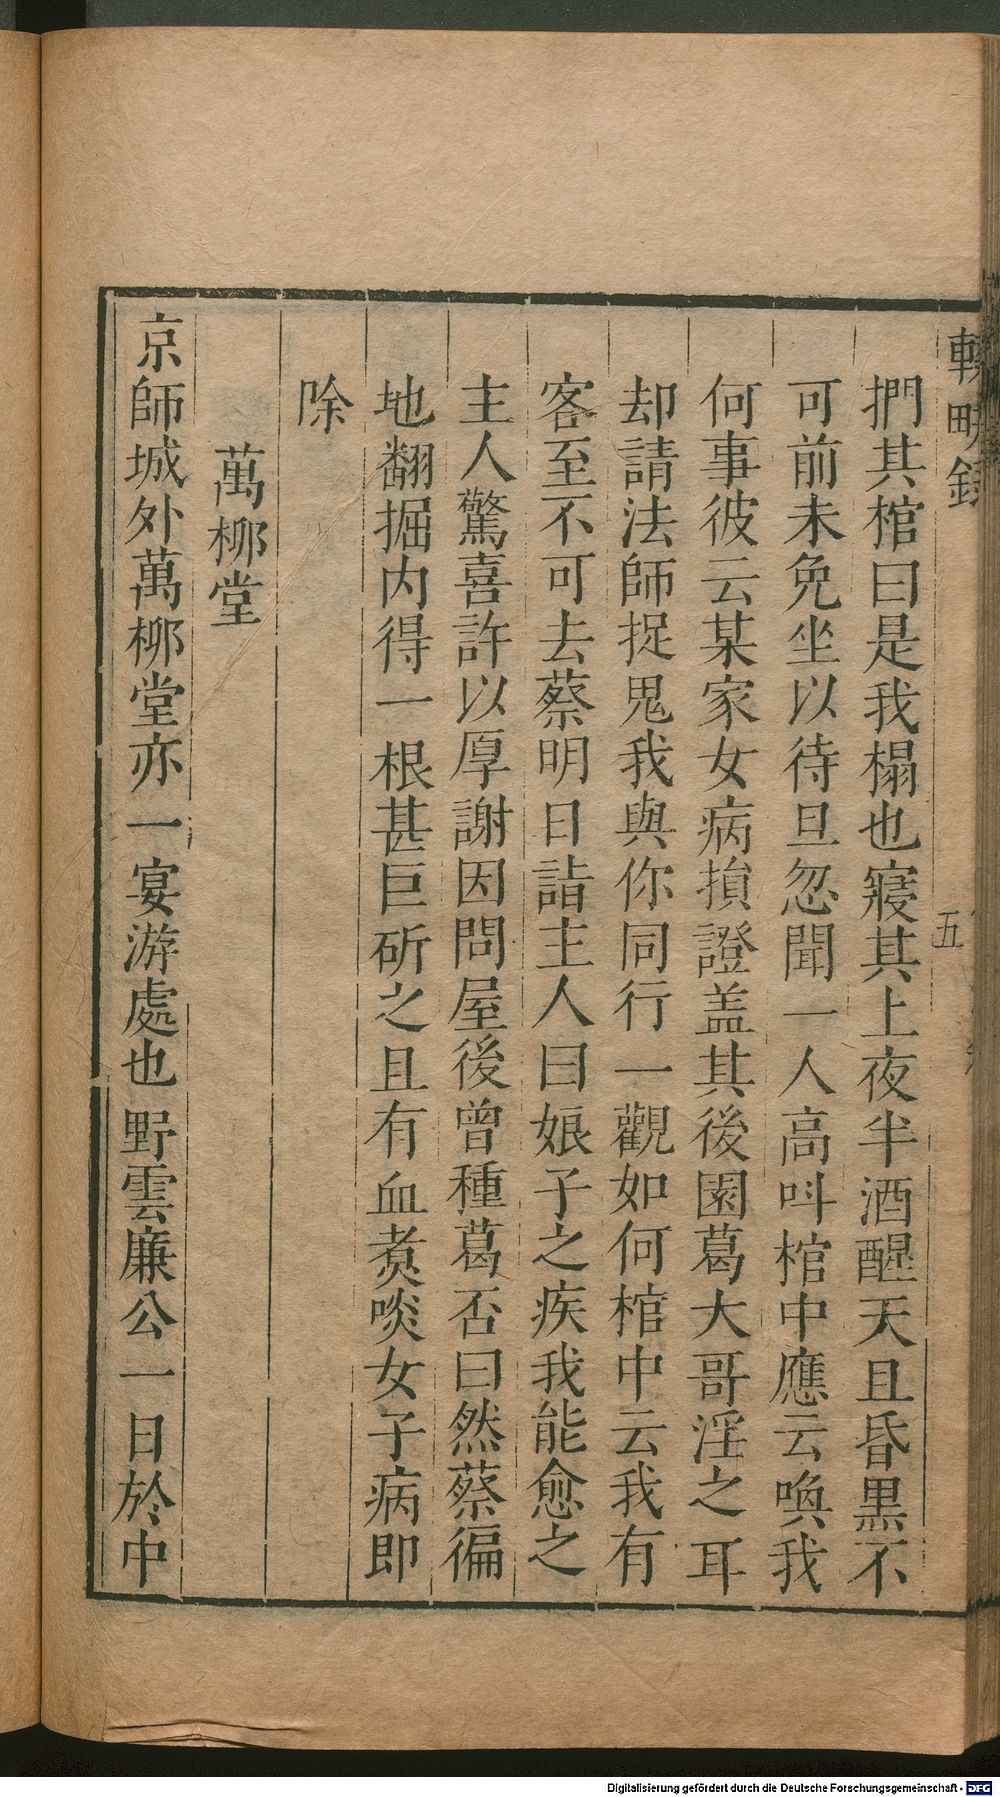 輟畊錄
五
捫其棺曰是我榻也寢其上夜半酒醒天且昏黒不
可前未免坐以待旦忽聞一人高呌棺中應云喚我
何事彼云某家女病損證盖其後園葛大哥淫之耳
却請法師捉鬼我與你同行一觀如何棺中云我有
客至不可去蔡明日詣主人曰娘子之疾我能愈之
主人驚喜許以厚謝因問屋後曾種葛否曰然蔡徧
地翻掘内得一根甚巨斫之且有血煑啖女子病即
除
萬柳堂
京師城外萬柳堂亦一宴游處也野雲廉公一日於中
Digitalisierung gefördert durch die Deutsche Forschungsgemeinschaft - DFG